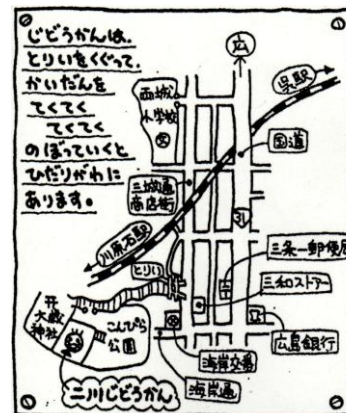 じどうかんは、
とりいをくぐって、
かいだんを
てくてく
てくてく
のぼっていくと
ひだりがわに
あります。
広
呉駅
西城
小学校
文
国道
三城通
商店街
川原石駅
とりい
三条一郵便局
三和ストアー
大歳
神社
こんぴら
公園
海岸交番
広島銀行
海岸通
二川じどうかん